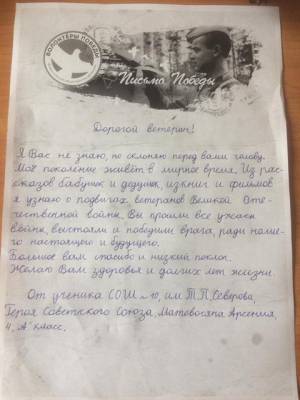 ВОЛОНТЁРЫ ПОБЕДЫ
Письмо Победы
Дорогой ветеран!
Я Вас не знаю, но склоняю перед вами голову.
Моё поколение живёт в мирное время. Из рас-
сказов бабушек и дедушек, из книг и фильмов
я узнаю о подвигах ветеранов Великой Оте-
чественной войны. Вы прошли все ужасы
войны, выстояли и победили врага, ради наше-
го настоящего и будущего.
Большое вам спасибо и низкий поклон.
Желаю Вам здоровья и долгих лет жизни.
От ученика СОШ №10, им. Т.П. Северова,
Героя Советского Союза, Матевосяна Арсения,
4 "А" класс.